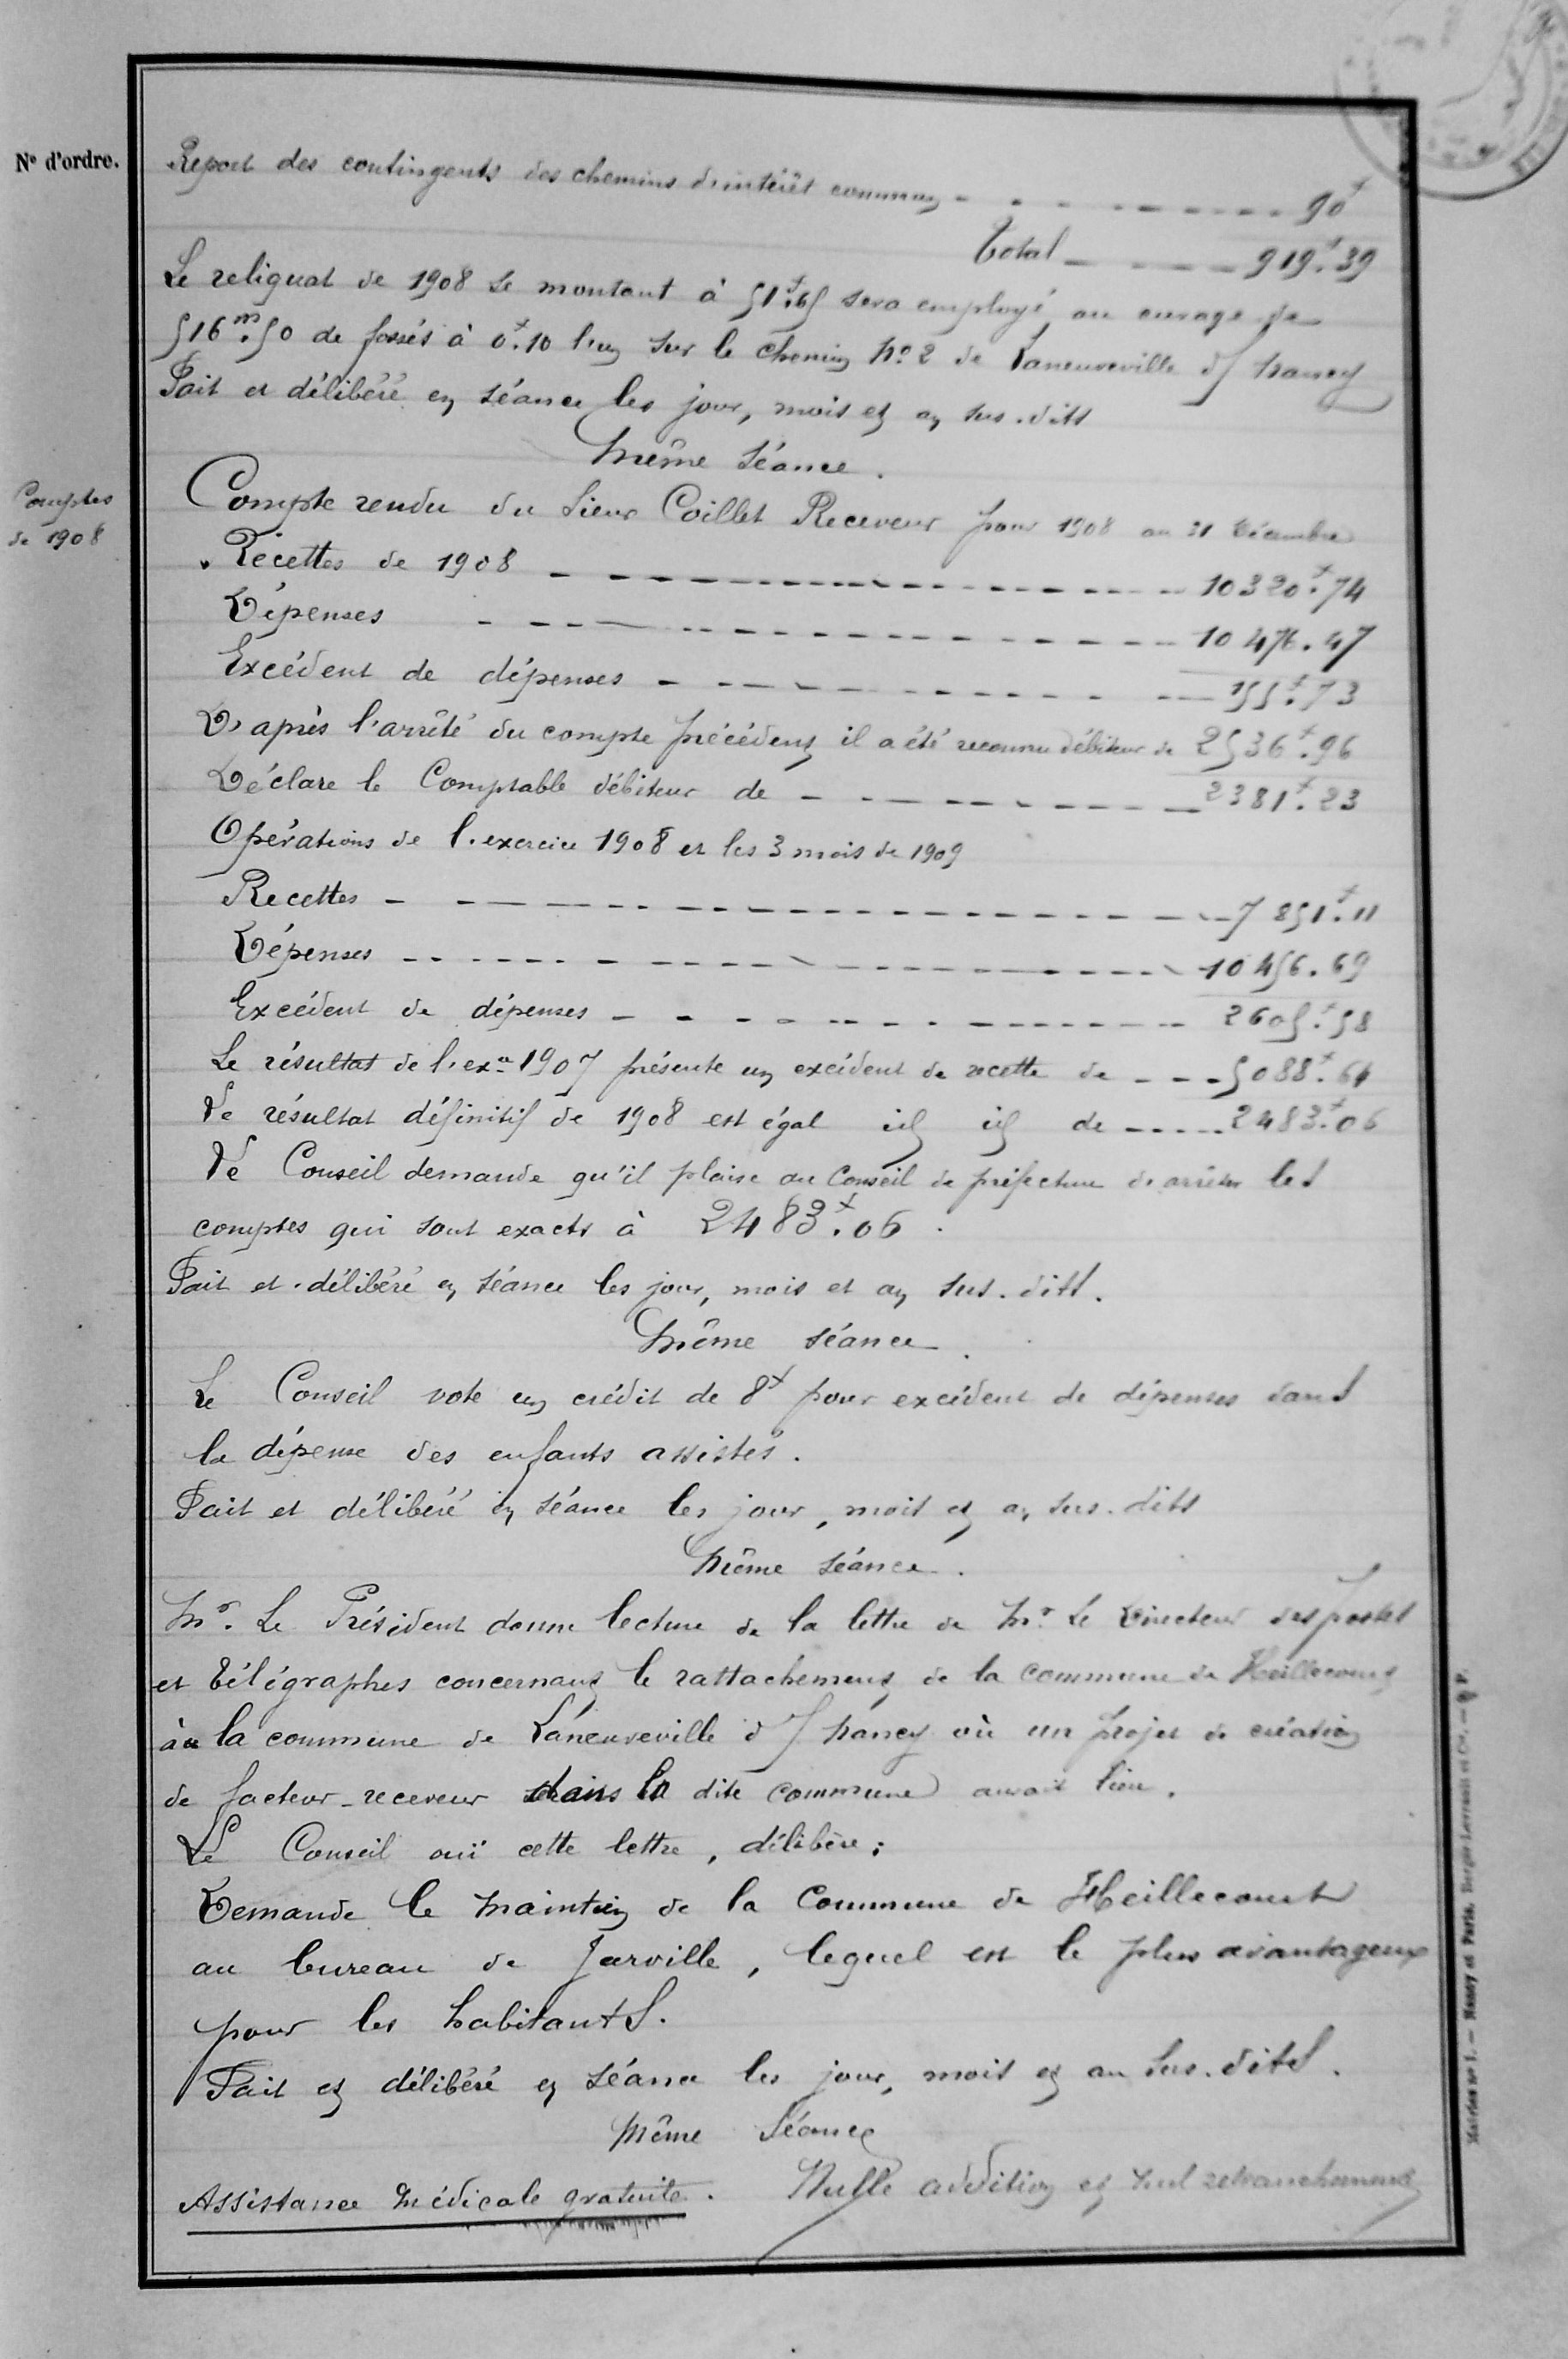 N° d'ordre.
Report des contingents des chemins d'intérêt commun - - - - - - - - 90f
Total - - - - 919f.39
Le reliquat de 1908 se montant à 51f.65 sera employé au curage de
516m.50 de fossés à 0f.10 l'un sur le chemin n° 2 de Laneuveville d/ Nancy
Fait et délibéré en séance les jour, mois et an sus.dits
Même séance.
Comptes
de 1908
Compte rendu du Sieur Coillet Receveur pour 1908 au 31 Décembre
Recettes de 1908 - - - - - - - - 10320f.74
Dépenses - - - - - - - - 10476.47
Excédent de dépenses - - - - - - - - 155f.73
D'après l'arrêté du compte précédent il a été reconnu débiteur de 2536f.96
Déclare le Comptable débiteur de - - - - - - - - 2381f.23
Opérations de l'exercice 1908 et les 3 mois de 1909
Recettes - - - - - - - - 7851f.11
Dépenses - - - - - - - - 10456.69
Excédent de dépenses - - - - - - - - 2605f.58
Le résultat de l'exce 1907 présente un excédent de recette de - - - 5088f.64
Le résultat définitif de 1908 est égal id id de - - - - - 2483f.06
Le Conseil demande qu'il plaise au Conseil de préfecture d'arrêter les
comptes qui sont exacts à 2483f.06.
Fait et délibéré en séance les jour, mois et an sus.dits.
Même séance.
Le Conseil vote un crédit de 8f pour excédent de dépenses dans
la dépense des enfants assistés.
Fait et délibéré en séance les jour, mois et an sus.dits
Même séance.
Mr. Le Président donne lecture de la lettre de Mr. Le Directeur des postes
et Télégraphes concernant le rattachement de la commune de Heillecourt
à la commune de Laneuveville d/ Nancy où un projet de création
de facteur-receveur dans la dite commune aurait lieu.
Le Conseil ouï cette lettre, délibère:
Demande le maintien de la Commune de Heillecourt
au bureau de Jarville, lequel est le plus avantageux
pour les habitants.
Fait et délibéré en séance les jour, mois et an sus.dits.
Même Séance
Assistance Médicale gratuite. Nulle addition et nul retranchement
Mairies n° 1. — Nancy et Paris. Berger-Levrault et Cie. —